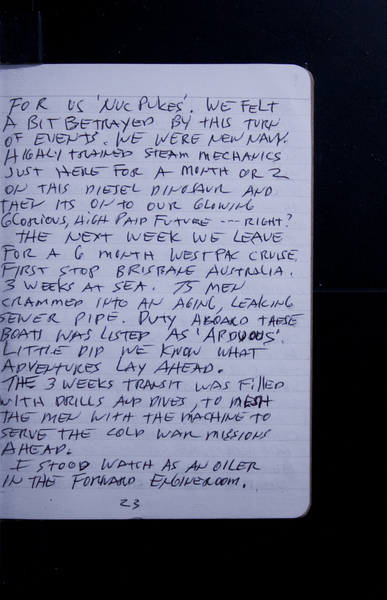 FOR US 'NUC PUKES'. WE FELT
A BIT BETRAYED BY THIS TURN
OF EVENTS. WE WERE NEW NAVY.
HIGHLY TRAINED STEAM MECHANICS
JUST HERE FOR A MONTH OR 2
ON THIS DIESEL DINOSAUR AND
THEN ITS ON TO OUR GLOWING
GLORIOUS, HIGH PAID FUTURE --- RIGHT?
THE NEXT WEEK WE LEAVE
FOR A 6 MONTH WESTPAC CRUISE.
FIRST STOP BRISBANE AUSTRALIA.
3 WEEKS AT SEA. 75 MEN
CRAMMED INTO AN AGING, LEAKING
SEWER PIPE. DUTY ABOARD THESE
BOATS WAS LISTED AS 'ARDUOUS'.
LITTLE DID WE KNOW WHAT
ADVENTURES LAY AHEAD.
THE 3 WEEKS TRANSIT WAS FILLED
WITH DRILLS AND DIVES, TO MESH
THE MEN WITH THE MACHINE TO
SERVE THE COLD WAR MISSIONS
AHEAD.
I STOOD WATCH AS AN OILER
IN THE FORWARD ENGINEROOM.
23